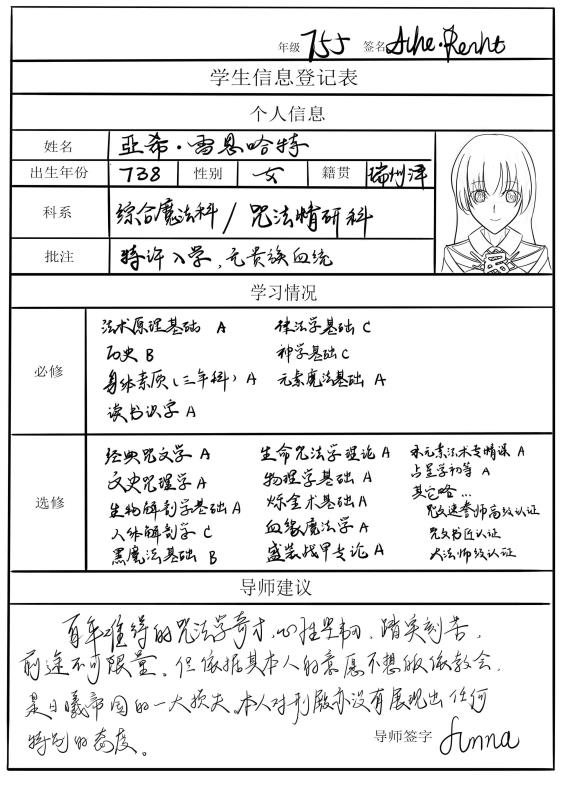 年级 755 签名 Ashe·Renht
学生信息登记表
个人信息
姓名 亚希·雷恩哈特
出生年份 738 性别 女 籍贯 瑞州泽
科系 综合魔法科 / 咒法精研科
批注 特许入学,无贵族血统
学习情况
必修
法术原理基础 A 律法学基础 C
历史 B 神学基础 C
身体素质(三年科) A 元素魔法基础 A
读书识字 A
选修
经典咒文学 A 生命咒法学理论 A 水元素法术专精课 A
文史咒理学 A 物理学基础 A 占星学初等 A
生物解剖学基础 A 炼金术基础 A 其它略...
人体解剖学 C 血缘魔法学 A 咒文迷誊师高级认证
黑魔法基础 B 盛装战甲专论 A 咒文书匠认证
大法师级认证
导师建议
百年难得的咒法学奇才,心性坚韧,踏实刻苦,
前途不可限量。但依据其本人的意愿不想皈依教会,
是日曦帝国的一大损失。本人对刑殿亦没有展现出任何
特别的态度。
导师签字 Anna